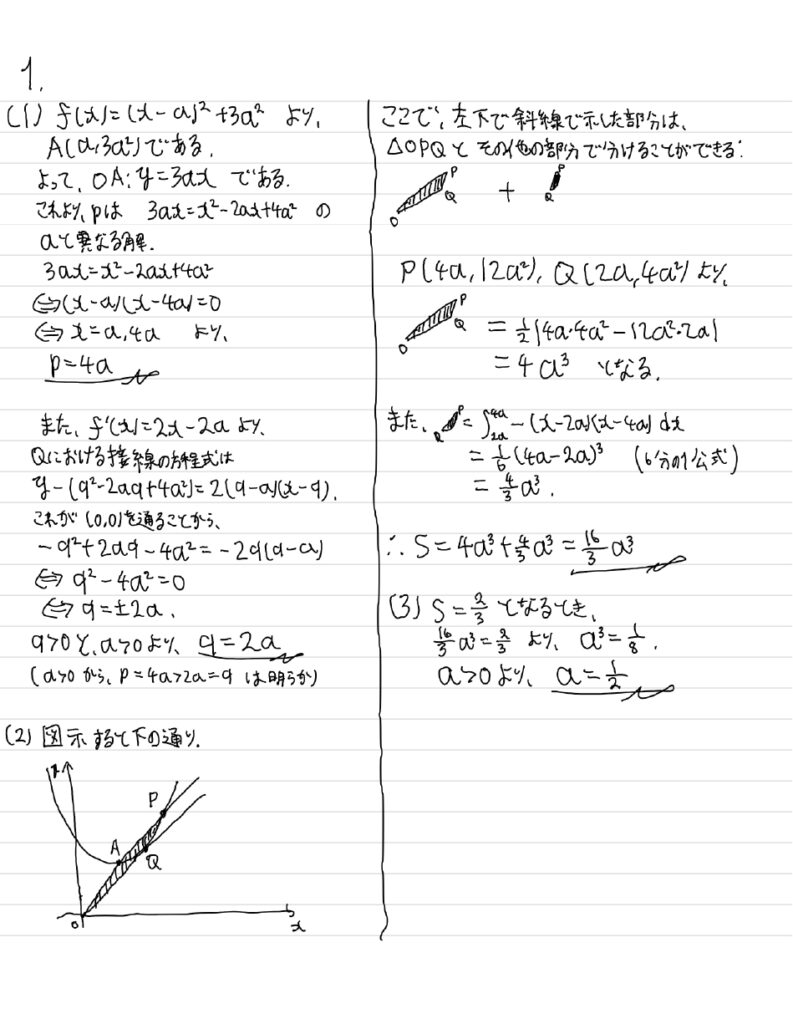 1.
(1) f(x)=(x-a)²+3a² より、
A(a,3a²)である。
よって、OA:y=3ax である。
これより、Pは 3ax=x²-2ax+4a² の
aと異なる解.
3ax=x²-2ax+4a²
⇔(x-a)(x-4a)=0
⇔ x=a,4a より、
p=4a
また、f'(x)=2x-2aより、
Qにおける接線の方程式は
y-(q²-2aq+4a²)=2(q-a)(x-q).
これが(0,0)を通ることから、
-q²+2aq-4a²=-2q(q-a)
⇔ q²-4a²=0
⇔ q=±2a.
q>0と、a>0より、q=2a
(a>0から、p=4a>2a=q は明らか)
(2) 図示すると下の通り.
y
P
A
Q
O
x
ここで、左下で斜線で示した部分は、
△OPQと その他の部分で分けることができる:
P
Q
O
+
P
Q
P(4a,12a²), Q(2a,4a²)より、
P
Q
O
=½|4a・4a²-12a²・2a|
=4a³ となる.
また、
P
Q
=∫₂ₐ⁴ᵃ -(x-2a)(x-4a) dx
=1/6(4a-2a)³ (6分の1公式)
=4/3a³.
∴ S=4a³+4/3a³=16/3a³
(3) S=2/3となるとき、
16/3a³=2/3 より、a³=1/8.
a>0より、a=1/2